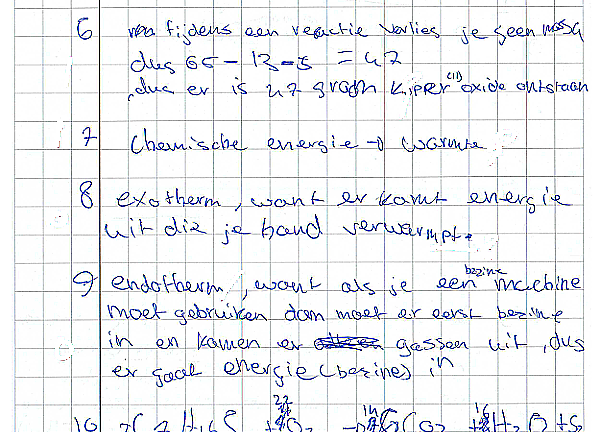 6 tijdens een reactie verlies je geen massa
dus 65 - 13 - 5 = 47
dus er is 47 gram koper (II) oxide ontstaan
7 chemische energie → warmte
8 exotherm, want er komt energie
uit die je hand verwarmpt.
9 endotherm, want als je een bezine machine
moet gebruiken dan moet er eerst bezine
in en komen er gassen uit, dus
er gaat energie (bezine) in
10